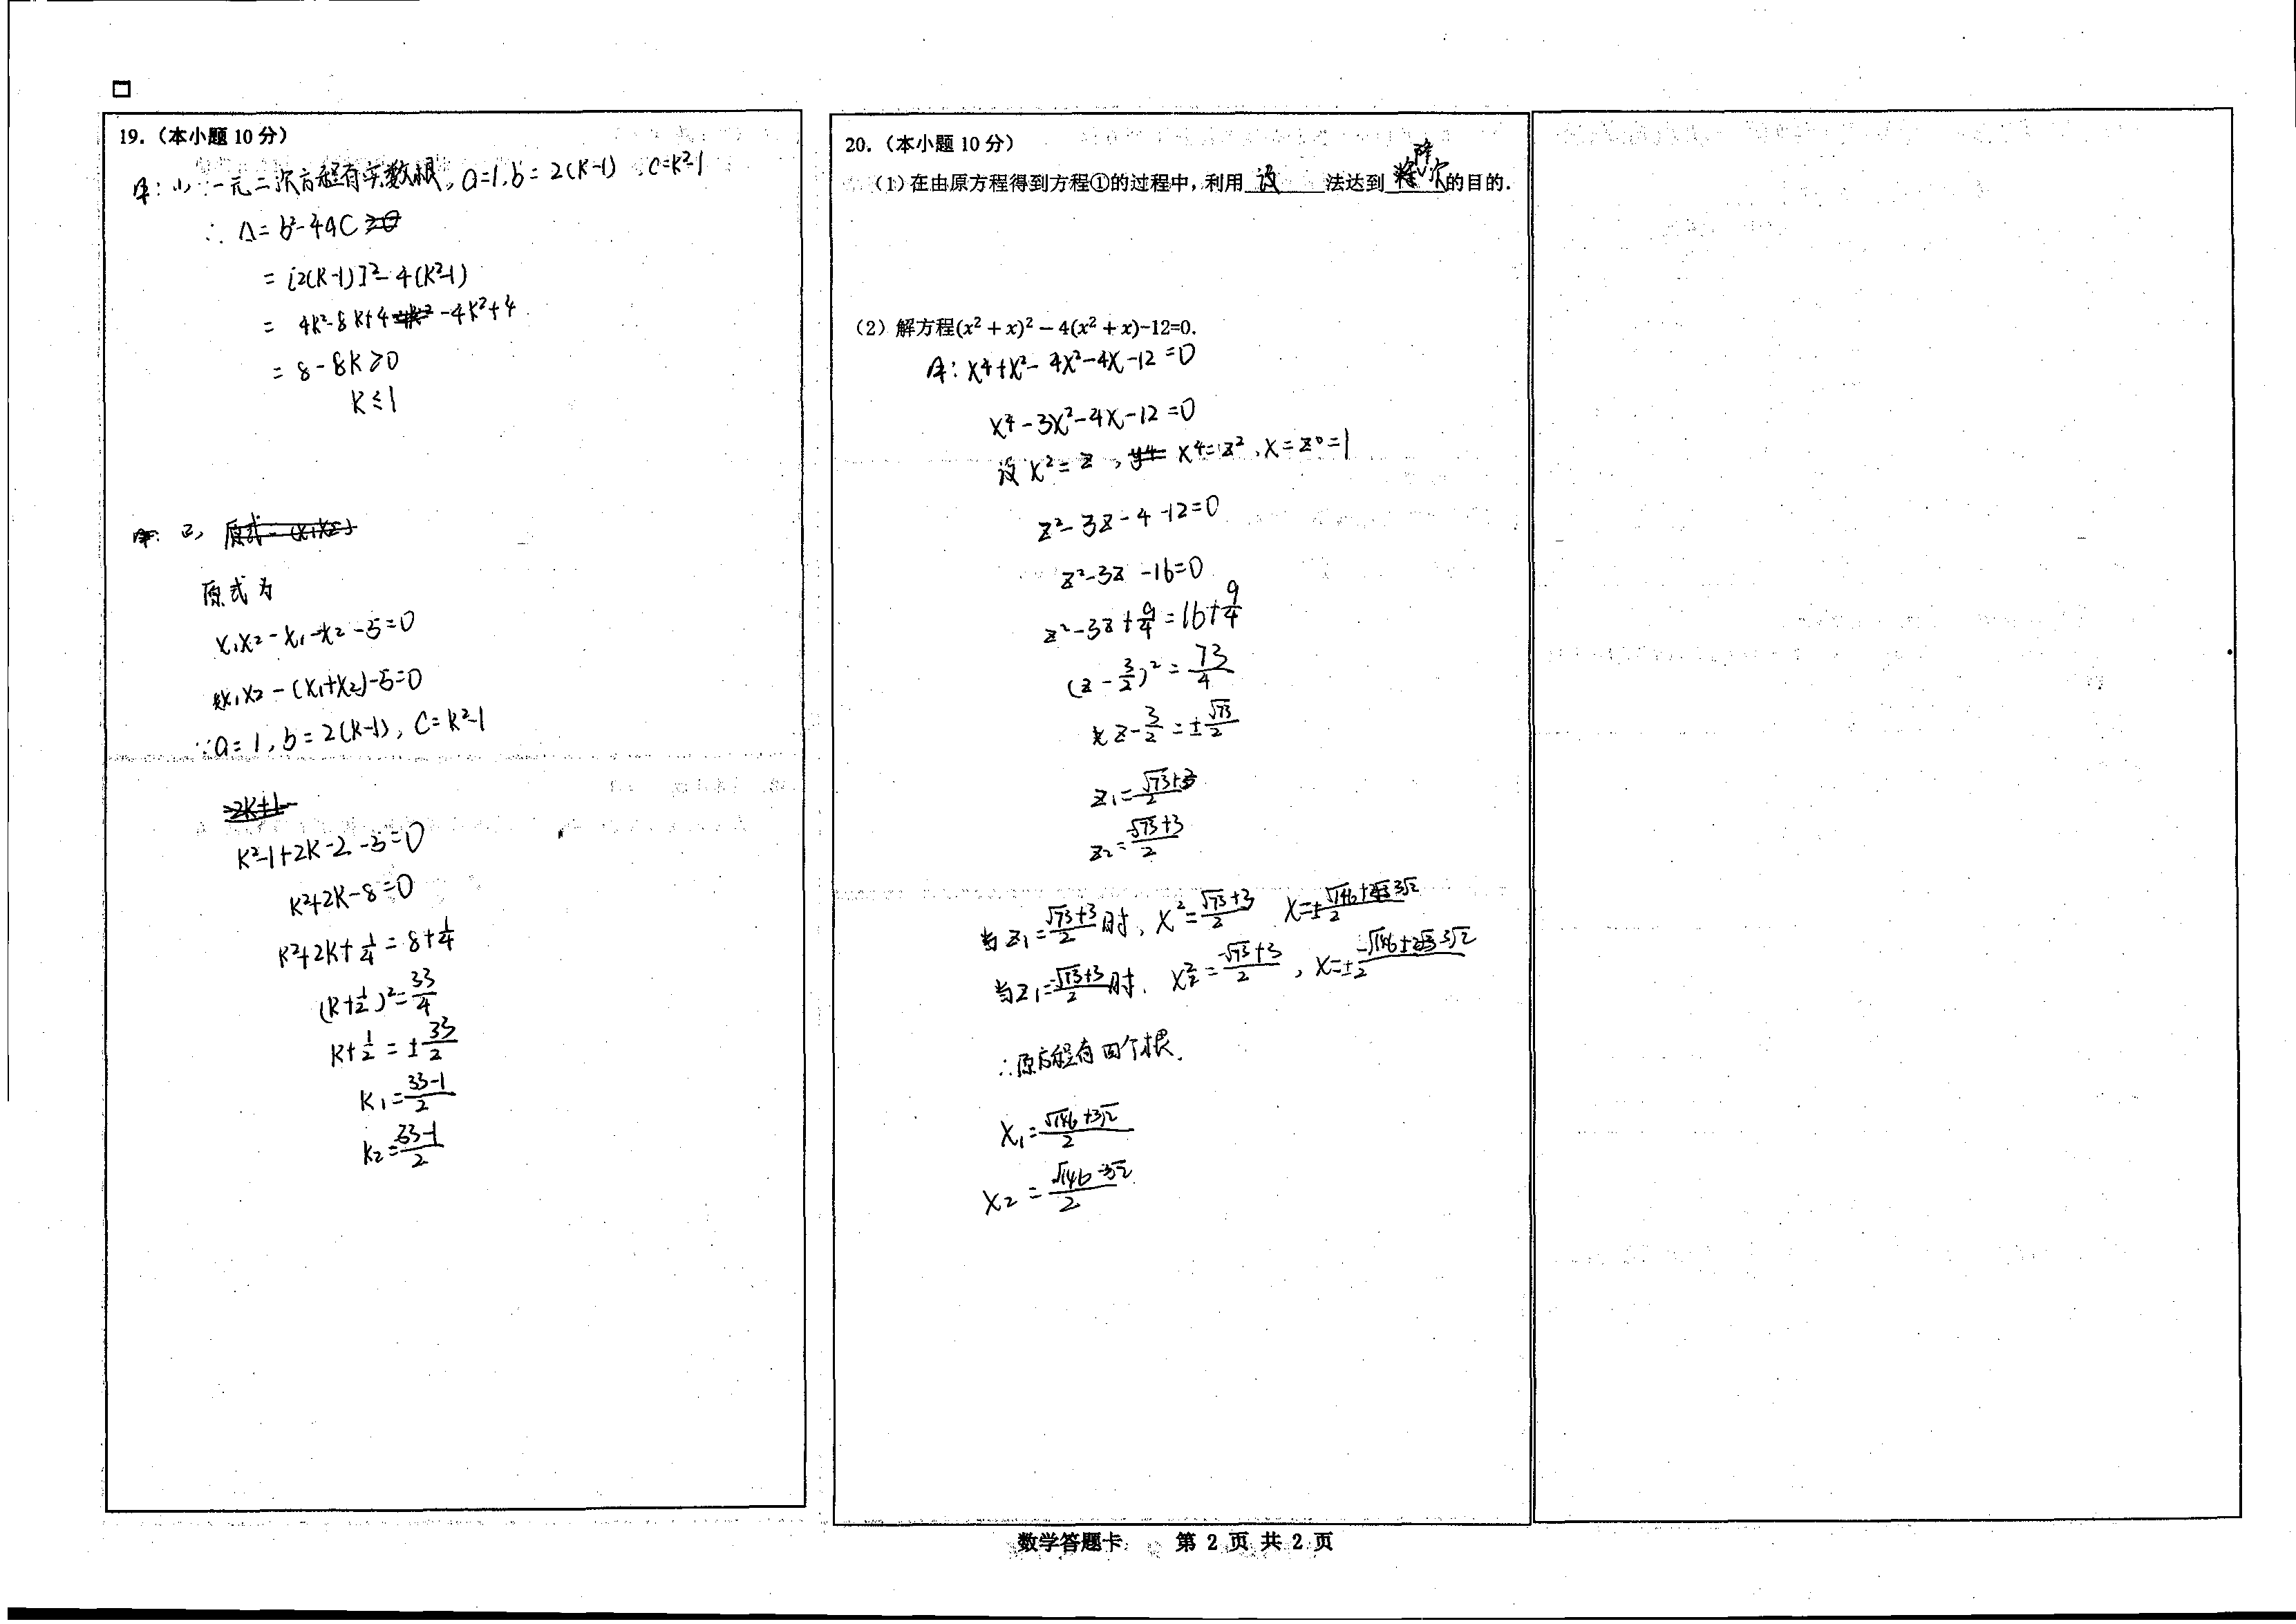 19.（本小题 10 分）
解: (1) 一元二次方程有实数根, a=1, b=2(k-1), c=k²-1
∴ Δ= b²-4ac
= [2(k-1)]²-4(k²-1)
= 4k²-8k+4 -4k²+4
= 8-8k≥0
k≤1
解: (2)
原式为
x₁x₂-x₁-x₂-5=0
x₁x₂-(x₁+x₂)-5=0
∵a=1, b=2(k-1), c=k²-1
k²-1+2k-2-5=0
k²+2k-8=0
k²+2k+1/4=8+1/4
(k+1/2)²=33/4
k+1/2=±33/2
k₁=(33-1)/2
20.（本小题 10 分）
（1）在由原方程得到方程①的过程中，利用 设 法达到 降次 的目的.
（2）解方程(x² + x)² − 4(x² + x)-12=0.
解: x⁴+x²-4x²-4x-12=0
x⁴-3x²-4x-12=0
设 x²=z, x⁴=z², x=z⁰=1
z²-3z-4-12=0
z²-3z-16=0
z²-3z+9/4=16+9/4
(z-3/2)²=73/4
z-3/2=±√73/2
z₁=(√73+3)/2
当z₁=(√73+3)/2时, x²=(√73+3)/2
∴原方程有四个根.
x₁=(√146+3√2)/2
x₂=(√146-3√2)/2
数学答题卡 第 2 页 共 2 页